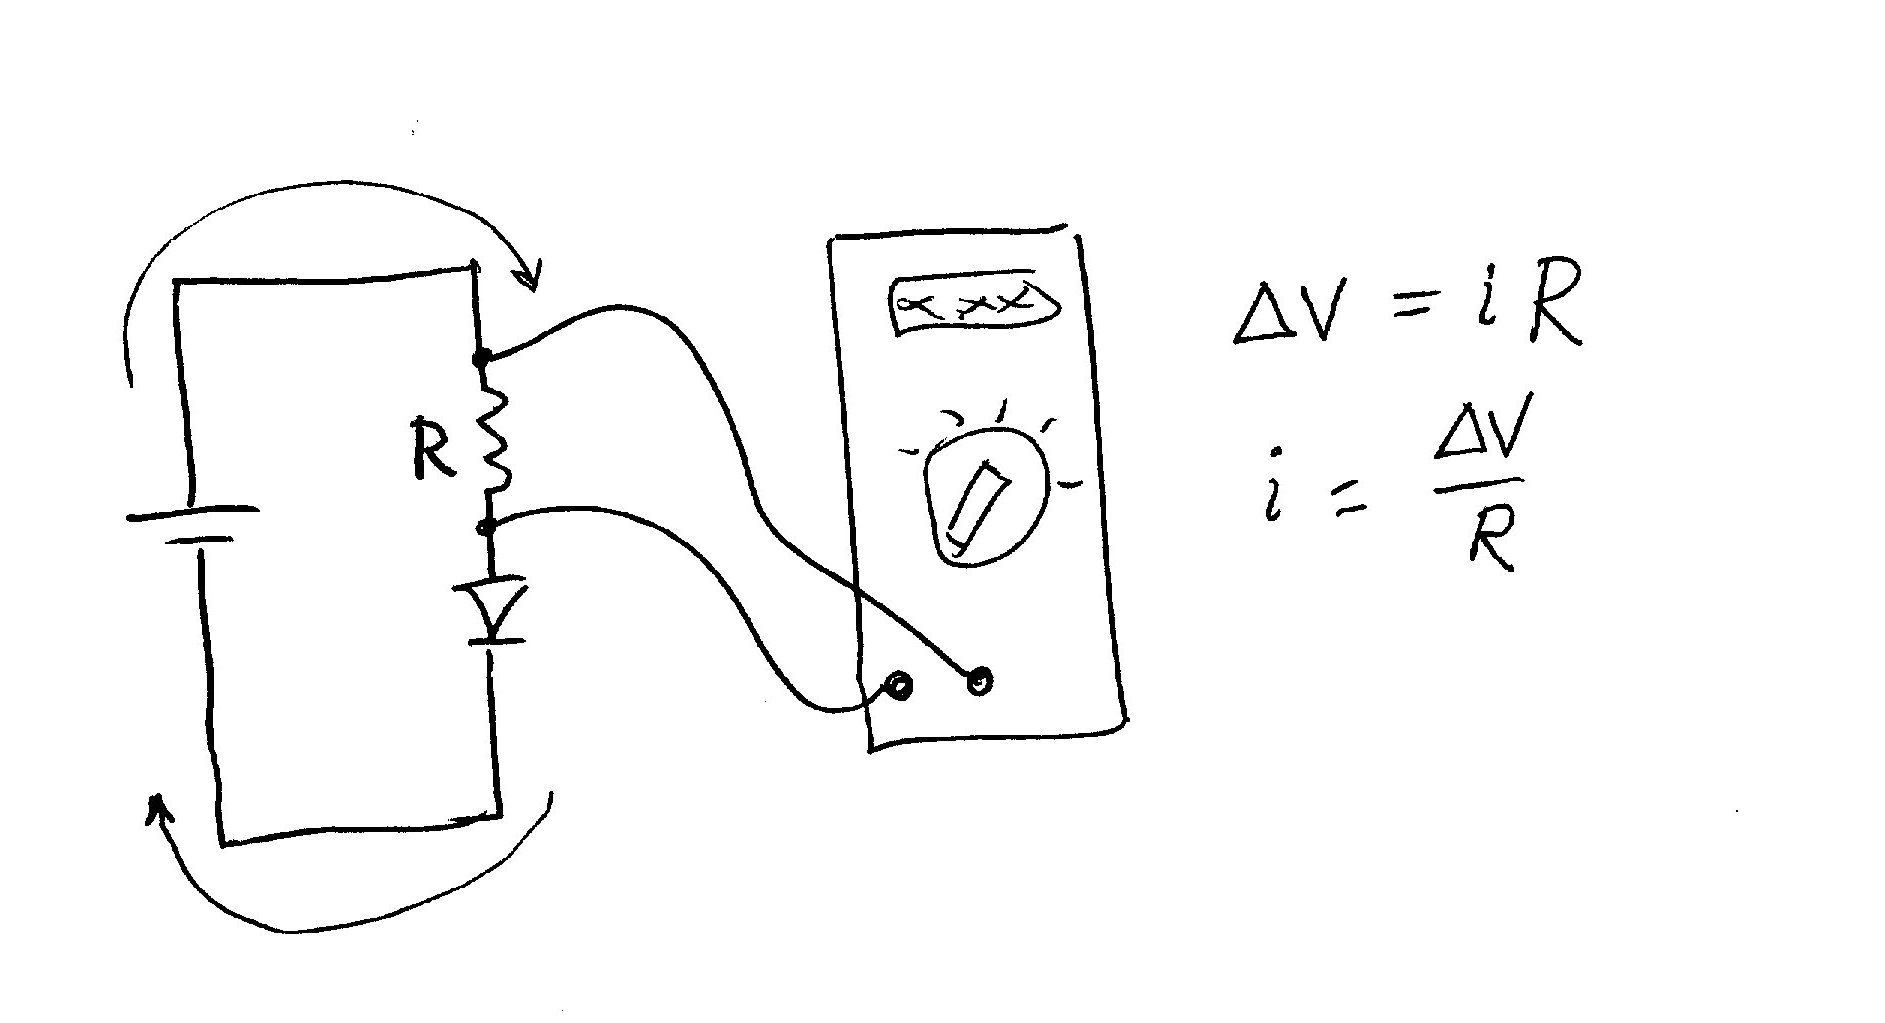 R
XXX
ΔV = iR
i = ΔV/R